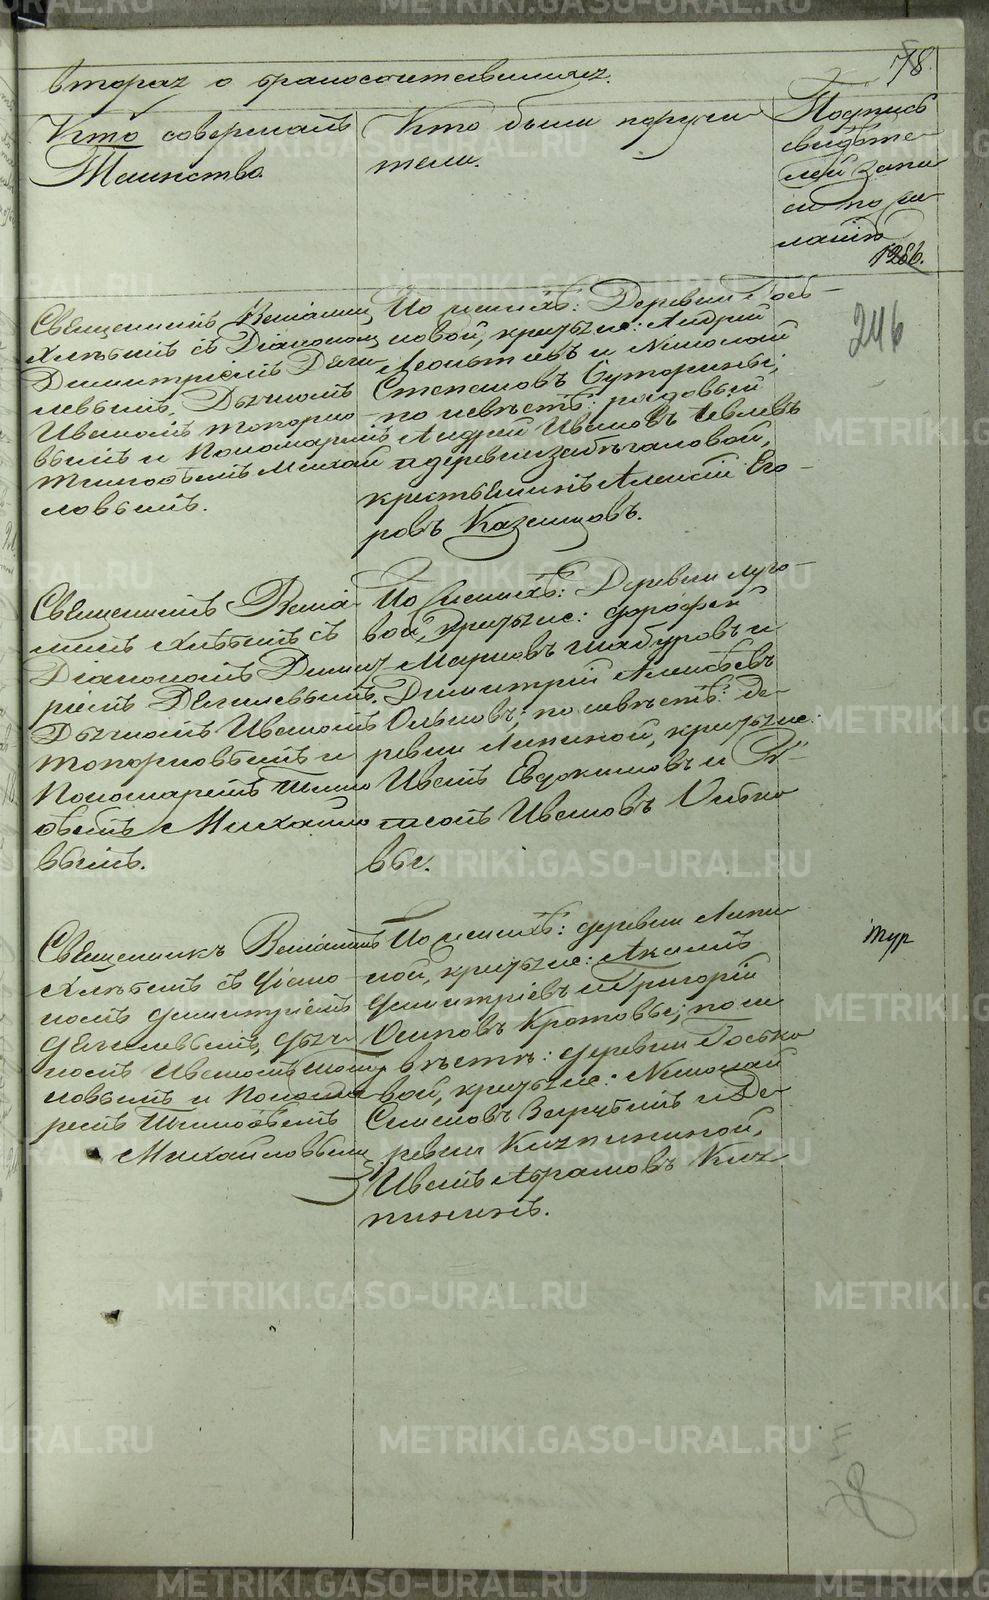 вторая о бракосочетавшихся.
78.
Кто совершалъ
Таинство.
Кто были поручи
тели.
Подпись
свидѣте
лей запи
си по же
ланію
1286.
Священникъ Веніаминъ
Хлѣбинъ съ Діакономъ
Димитріемъ
Дьячкомъ
Иваномъ Топорко
вымъ и Пономаремъ
Тимоѳеемъ Михай
ловымъ.
По женихѣ: Деревни Гоеб
новой, крестьяне: Андрей
Леонтьевъ и Николай
Степановъ Буторины;
по невѣстѣ: рядовый
Андрей Ивановъ
и деревни
крестьянинъ Алексѣй Его
ровъ Казанцовъ.
246
Священникъ Веніа
минъ Хлѣбинъ съ
Діакономъ Димит
ріемъ
Дьячкомъ Иваномъ
Топорковымъ и
Пономаремъ Тимо
ѳеемъ Михайло
вымъ.
По женихѣ: Деревни Луго
вой, крестьяне: Дорофей
Марковъ Шабуровъ и
Димитрій Алексѣевъ
по невѣстѣ: де
ревни Липиной, крестьяне:
Иванъ Евдокимовъ и
Ивановъ
вы.
Священникъ Веніаминъ
Хлѣбинъ съ Діако
номъ Димитріемъ
Дьяч
комъ Иваномъ Топор
ковымъ и Понома
ремъ Тимоѳеемъ
Михайловымъ
По женихѣ: деревни Липи
ной, крестьяне: Акимъ
Димитріевъ и Григорій
Осиповъ Кротовы; по не
вѣстѣ: деревни
вой, крестьяне: Николай
Семеновъ и Де
ревни Кичигиной,
Иванъ Абрамовъ Кичи
гинъ.
тур
78
METRIKI.GASO-URAL.RU